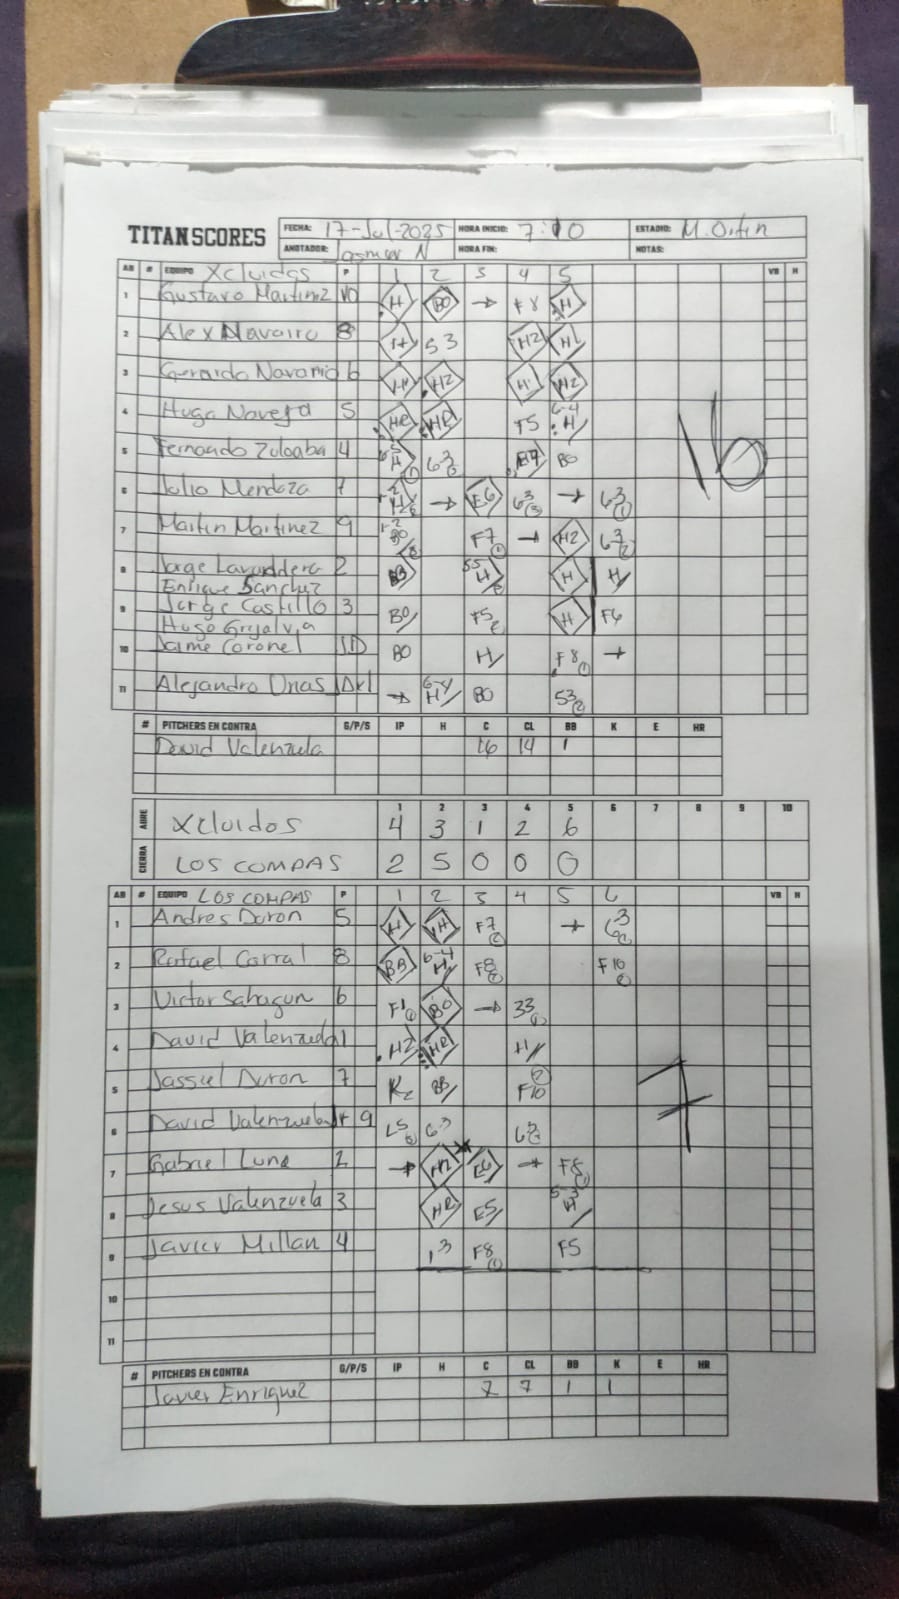 TITANSCORES
FECHA: 17-Jul-2025 HORA INICIO: 7:10 ESTADIO:
ANOTADOR: HORA FIN: NOTAS:
AB # EQUIPO Xcluidos P 1 2 3 4 5 VB H
1 Gustavo Martinez 10 H BO → F8 H
2 Alex Navarro 8 H 53 H2 H1
3 Gerardo Navarro 6 H2 H1 H2
4 Hugo 5 HR HR F5 6-4 H
5 Fernando 4 H 63 BO
6 Julio Mendoza 7 → E6 63 → 63
7 Martin Martinez 9 BO F7 → H2 63
8 Jorge 2 H H H
Enrique Sanchez
9 Jorge Castillo 3 BO F5 H F6
Hugo Grijalva
10 Jaime Coronel BO H F8 →
11 Alejandro → 6-4 H BO 53
# PITCHERS EN CONTRA G/P/S IP H C CL BB K E HR
David Valenzuela 16 14 1
16
1 2 3 4 5 6 7 8 9 10
ABRE Xcluidos 4 3 1 2 6
CIERRA LOS COMPAS 2 5 0 0 0
AB # EQUIPO LOS COMPAS P 1 2 3 4 5 6 VB H
1 Andres Duron 5 H H F7 → 63
2 Rafael Corral 8 BB 6-4 H F8 F10
3 Victor Sahagun 6 BO → 33
4 David Valenzuela 1 H2 HR H
5 Jassiel Duron 7 K BB F10
6 David Valenzuela Jr 9 63 63
7 Gabriel Luna 2 → H2 E6 → F8
8 Jesus Valenzuela 3 HR E5 5-3 H
9 Javier Millan 4 13 F8 F5
10
11
7
# PITCHERS EN CONTRA G/P/S IP H C CL BB K E HR
Javier Enriquez 7 7 1 1